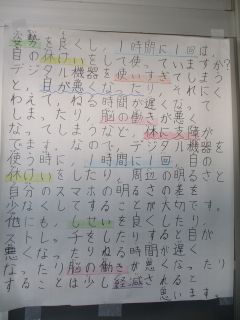 姿勢を良くし、1時間に1回は、
目の休けいをして使っていますか?
デジタル機器を使いすぎてしまう
と、目が悪くなったり、それにく
わえて、ねる時間が遅くなって
しまったり、脳の働きが悪く
なってしまうなど、体に支障が
でます。なので、デジタル機器を
使う時に、1時間に1回、目の
休けいをしたり、周辺の明るさと
自分のスマホの明るさの差を
少なくしてすることが大切です。
他にも、しせいを良くしたり、
ストレッチをしたりすると目が
悪くなったりねる時間が遅く
なったり脳の働きが悪くなったり
することは少し軽減されると
思います。